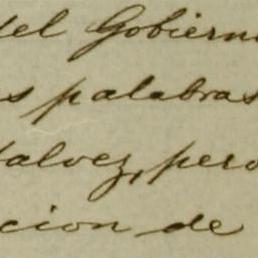 del Gobierno
s palabras
talvez, pero
cion de